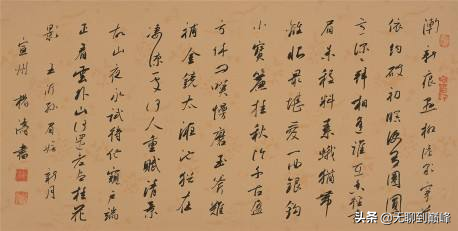 漸新痕懸柳淡彩穿花
依約破初暝便有團圓
意深深拜相逢誰在香徑畫
眉未穩料素娥猶帶
離恨最堪愛一曲銀鈎
小寶簾挂秋冷千古盈
虧休問嘆慢磨玉斧難
補金鏡太液池猶在
淒涼處何人重賦清景
故山夜永試待他窺戶端
正看雲外山河還老盡桂花
影 王沂孫眉嫵新月
宣州 書
头条@无聊到巅峰